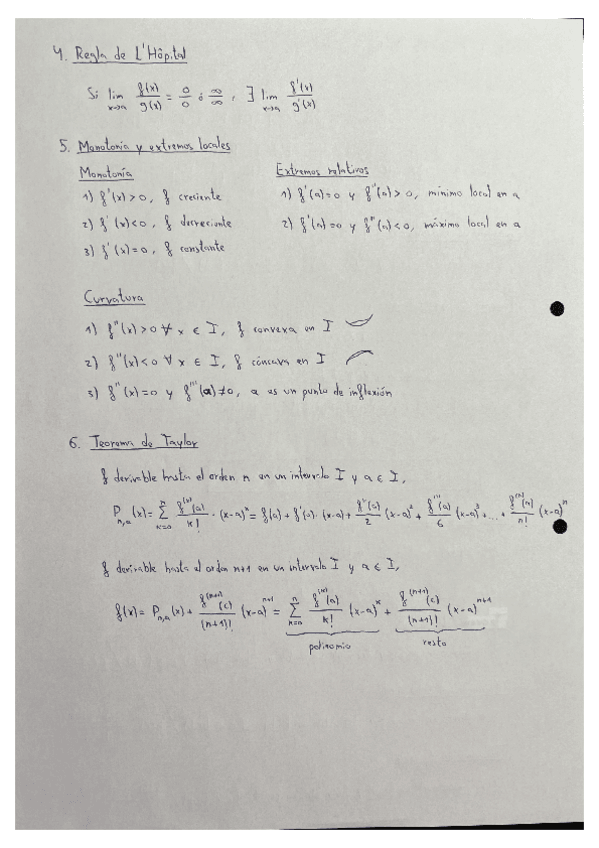 4. Regla de L'Hôpital
Si lim x→a f(x)/g(x) = 0/0 ó ∞/∞, ∃ lim x→a f'(x)/g'(x)
5. Monotonía y extremos locales
Monotonía
1) f'(x)>0, f creciente
2) f'(x)<0, f decreciente
3) f'(x)=0, f constante
Extremos relativos
1) f'(a)=0 y f''(a)>0, mínimo local en a
2) f'(a)=0 y f''(a)<0, máximo local en a
Curvatura
1) f''(x)>0 ∀ x ∈ I, f convexa en I
2) f''(x)<0 ∀ x ∈ I, f cóncava en I
3) f''(x)=0 y f'''(a)≠0, a es un punto de inflexión
6. Teorema de Taylor
f derivable hasta el orden n en un intervalo I y a ∈ I,
P_{n,a}(x) = Σ_{k=0}^{n} f^{(k)}(a)/k! · (x-a)^k = f(a) + f'(a)·(x-a) + f''(a)/2 (x-a)^2 + f'''(a)/6 (x-a)^3 + ... + f^{(n)}(a)/n! (x-a)^n
f derivable hasta el orden n+1 en un intervalo I y a ∈ I,
f(x) = P_{n,a}(x) + f^{(n+1)}(c)/(n+1)! (x-a)^{n+1} = Σ_{k=0}^{n} f^{(k)}(a)/k! (x-a)^k + f^{(n+1)}(c)/(n+1)! (x-a)^{n+1}
polinomio resto